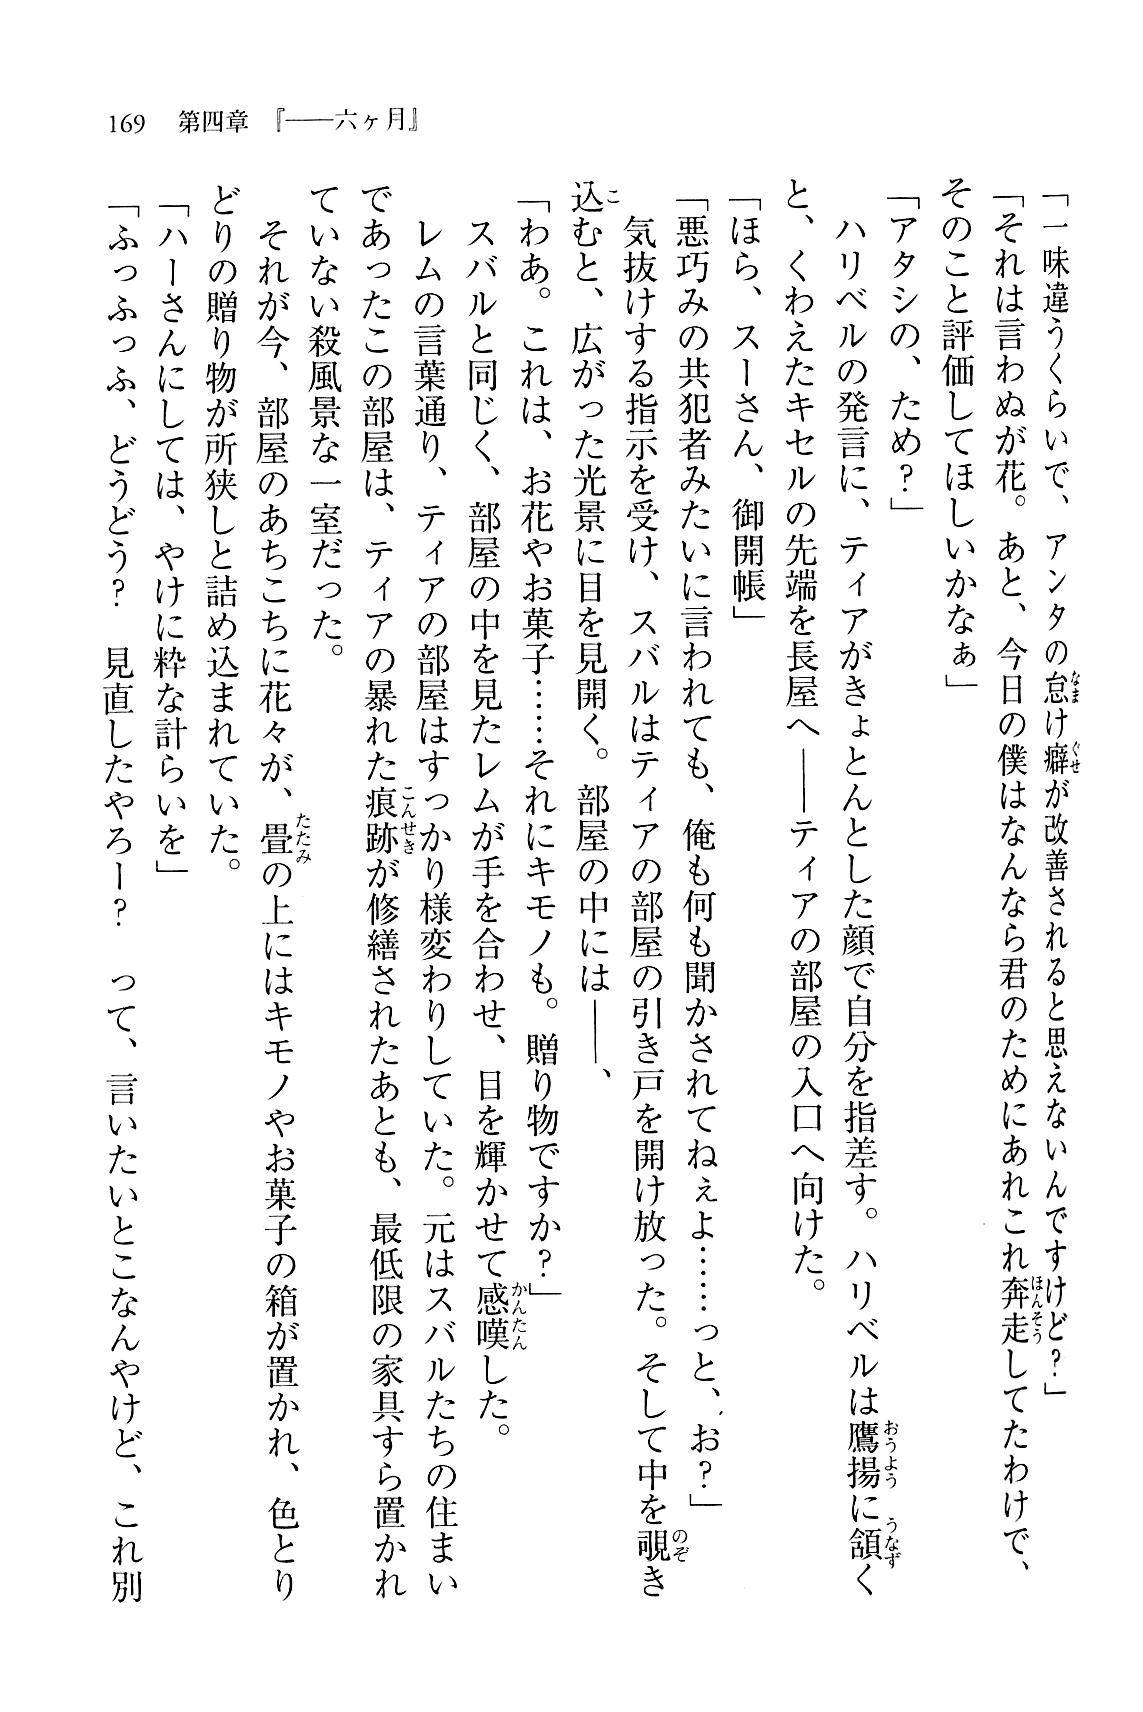 169　第四章　『――六ヶ月』
「一味違うくらいで、アンタの怠け癖が改善されると思えないんですけど？」
「それは言わぬが花。あと、今日の僕はなんなら君のためにあれこれ奔走してたわけで、
そのこと評価してほしいかなぁ」
「アタシの、ため？」
　ハリベルの発言に、ティアがきょとんとした顔で自分を指差す。ハリベルは鷹揚に頷く
と、くわえたキセルの先端を長屋へ――ティアの部屋の入口へ向けた。
「ほら、スーさん、御開帳」
「悪巧みの共犯者みたいに言われても、俺も何も聞かされてねぇよ……っと、お？」
　気抜けする指示を受け、スバルはティアの部屋の引き戸を開け放った。そして中を覗き
込むと、広がった光景に目を見開く。部屋の中には――、
「わあ。これは、お花やお菓子……それにキモノも。贈り物ですか？」
　スバルと同じく、部屋の中を見たレムが手を合わせ、目を輝かせて感嘆した。
　レムの言葉通り、ティアの部屋はすっかり様変わりしていた。元はスバルたちの住まい
であったこの部屋は、ティアの暴れた痕跡が修繕されたあとも、最低限の家具すら置かれ
ていない殺風景な一室だった。
　それが今、部屋のあちこちに花々が、畳の上にはキモノやお菓子の箱が置かれ、色とり
どりの贈り物が所狭しと詰め込まれていた。
「ハーさんにしては、やけに粋な計らいを」
「ふっふっふ、どうどう？　見直したやろー？　って、言いたいとこなんやけど、これ別